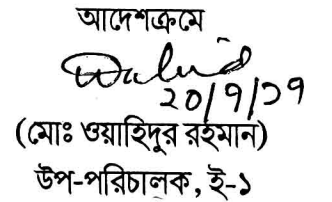 আদেশক্রমে
২০/৭/১৭
(মোঃ ওয়াহিদুর রহমান)
উপ-পরিচালক, ই-১